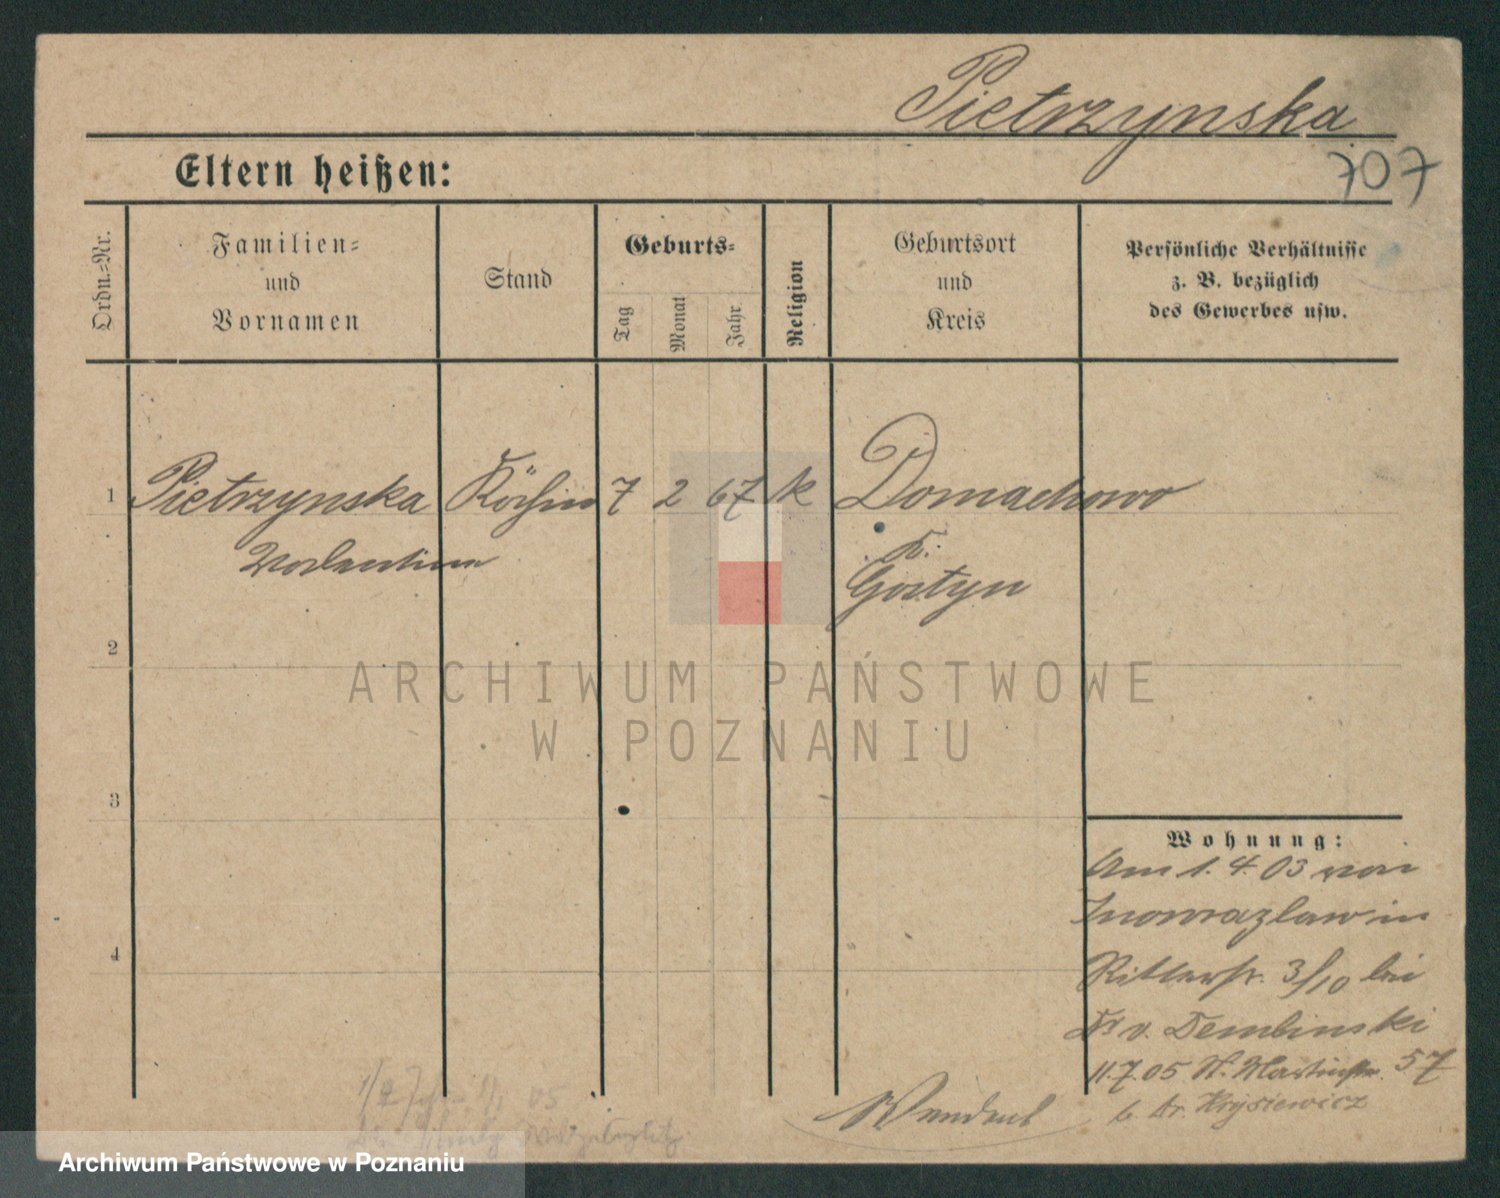 Pietrzynska
707
Eltern heißen:
Ordn.=Nr.
Familien=
und
Vornamen
Stand
Geburts=
Tag
Monat
Jahr
Religion
Geburtsort
und
Kreis
Persönliche Verhältnisse
z. B. bezüglich
des Gewerbes usw.
1 Pietrzynska Köchin 7 2 67 k Domachowo
Valentina K.
Gostyn
2
3
4
ARCHIWUM PAŃSTWOWE
W POZNANIU
Wohnung:
Am 1. 4. 03 von
Inowrazlaw in
Ritterstr. 3/10 bei
Dr v. Dembinski
11.7.05 St. Martinstr. 57
b. Dr. Krysiewicz
05
Archiwum Państwowe w Poznaniu